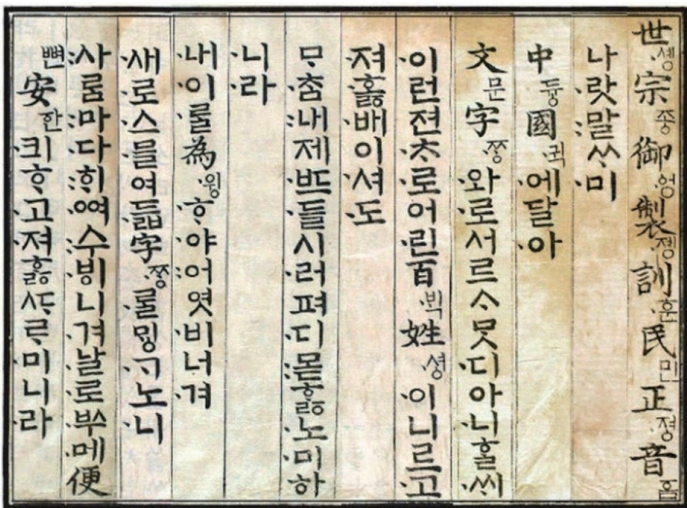 世솅宗종御ᅌᅥᆼ製졩訓훈民민正져ᇰ音ᅙᅳᆷ
나랏말ᄊᆞ미
中듀ᇰ國귁에달아
文문字ᄍᆞᆼ와로서르ᄉᆞᄆᆞᆺ디아니ᄒᆞᆯᄊᆡ
이런젼ᄎᆞ로어린百ᄇᆡᆨ姓셔ᇰ이니르고
져호ᇙ배이셔도
ᄆᆞᄎᆞᆷ내제ᄠᅳ들시러펴디몯ᄒᆞᇙ노미하
니라
내이ᄅᆞᆯ為윙ᄒᆞ야어엿비너겨
새로스믈여듧字ᄍᆞᆼᄅᆞᆯᄆᆡᇰᄀᆞ노니
사ᄅᆞᆷ마다ᄒᆡᅇᅧ수ᄫᅵ니겨날로ᄡᅮ메便
뼌安ᅙᅡᆫ킈ᄒᆞ고져ᄒᆞᇙᄯᆞᄅᆞ미니라